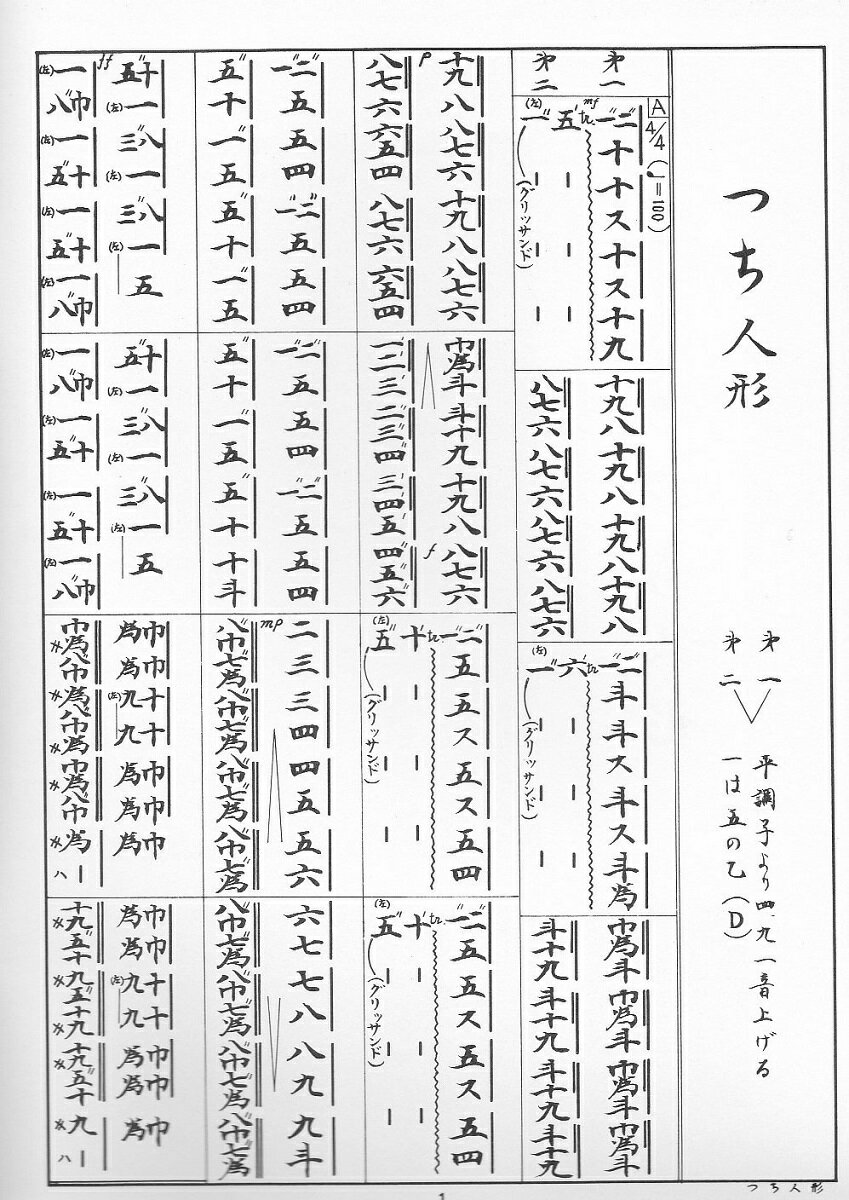 つち人形
㐧一
㐧二
平調子より四.九一音上げる
一は五の乙(D)
㐧一
A 4/4 (♩=100)
mf 二〃一〃十十ス十ス十九
十九八十九八十九八十九八
二〃一〃斗斗ス斗ス斗為
巾為斗巾為斗巾為斗巾為斗
㐧二
(左) 一〃五〃 tr. (グリッサンド)
八七六八七六八七六八七六
(左) 一〃六〃 tr. (グリッサンド)
斗十九斗十九斗十九斗十九
p 十九八八七六十九八八七六
巾為斗斗十九十九八 f 八七六
二〃一〃五五ス五ス五四
二〃一〃五五ス五ス五四
八七六六五四八七六六五四
一〃二〃三〃二〃三〃四〃三〃四〃五〃四〃五〃六〃
(左) 五〃十〃 tr. (グリッサンド)
(左) 五〃十〃 tr. (グリッサンド)
二〃一〃五五四二〃一〃五五四
二〃一〃五五四二〃一〃五五四
mp 二三三四四五五六
六七七八八九九斗
五〃十一〃五五〃十一〃五
五〃十一〃五五〃十十斗
八〃巾七〃為八〃巾七〃為八〃巾七〃為八〃巾七〃為
八〃巾七〃為八〃巾七〃為八〃巾七〃為八〃巾七〃為
ff 十五〃(左)一八三〃(左)一八三〃(左)一五
十五〃(左)一八三〃(左)一八三〃(左)一五
巾為巾為(左)十九十九巾為巾為巾為
巾為巾為(左)十九十九巾為巾為巾為
(左)一巾八〃(左)一十五〃(左)一十五〃(左)一巾八〃
(左)一巾八〃(左)一十五〃(左)一十五〃(左)一巾八〃
巾為八〃巾為八〃巾為巾為八〃巾為ハ
十九五〃十九五〃十九十九五〃十九ハ
1
つち人形